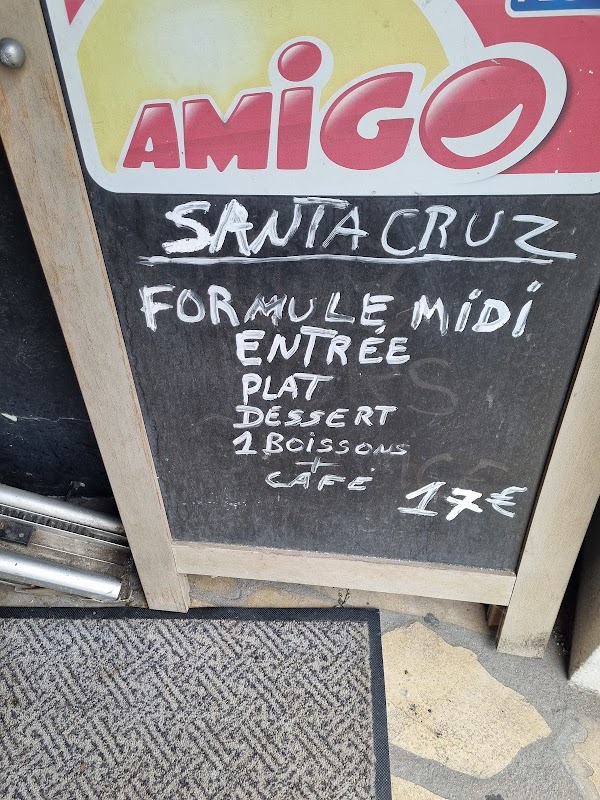 AMiGO
SANTA CRUZ
FORMULE MiDi
ENTRÉE
PLAT
DESSERT
1 BOiSSONS
+
CAFÉ
17€